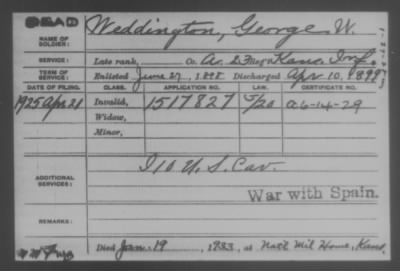 DEAD
NAME OF SOLDIER: Weddington, George W.
SERVICE: Late rank, Co. A. 23 Reg't Kans. Inf.
TERM OF SERVICE: Enlisted June 27, 1898 Discharged Apr 10, 1899
DATE OF FILING. CLASS. APPLICATION NO. LAW. CERTIFICATE NO.
1925 Apr 21 Invalid, 1517827 A-6-14-29
Widow,
Minor,
ADDITIONAL SERVICES: I 10 U.S. Cav.
War with Spain.
REMARKS:
Died Jan. 19, 1933, at Nat'l Mil Home, Kans.